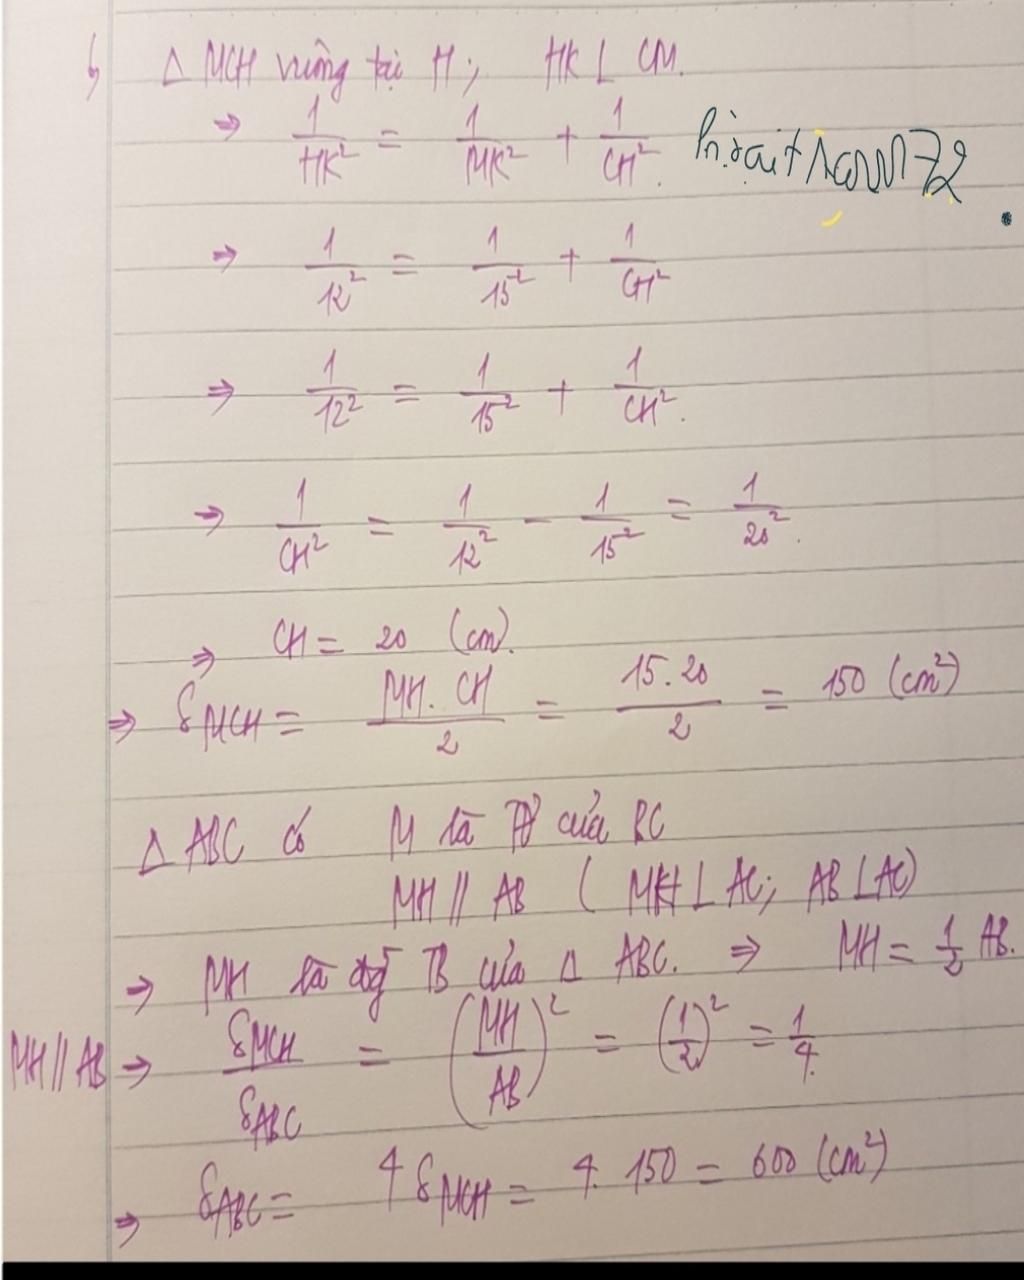 b, Δ MCH vuông tại H; HK ⊥ CM.
⇒ 1/HK² = 1/MK² + 1/CH².
⇒ 1/12² = 1/15² + 1/CH²
⇒ 1/12² = 1/15² + 1/CH².
⇒ 1/CH² = 1/12² - 1/15² = 1/20².
⇒ CH = 20 (cm).
⇒ S_MCH = MH.CH/2 = 15.20/2 = 150 (cm²)
Δ ABC có M là TĐ của BC
MH // AB (MH ⊥ AC; AB ⊥ AC)
⇒ MH là đg TB của Δ ABC. ⇒ MH = 1/2 AB.
MH // AB ⇒ S_MCH/S_ABC = (MH/AB)² = (1/2)² = 1/4.
⇒ S_ABC = 4 S_MCH = 4. 150 = 600 (cm²)